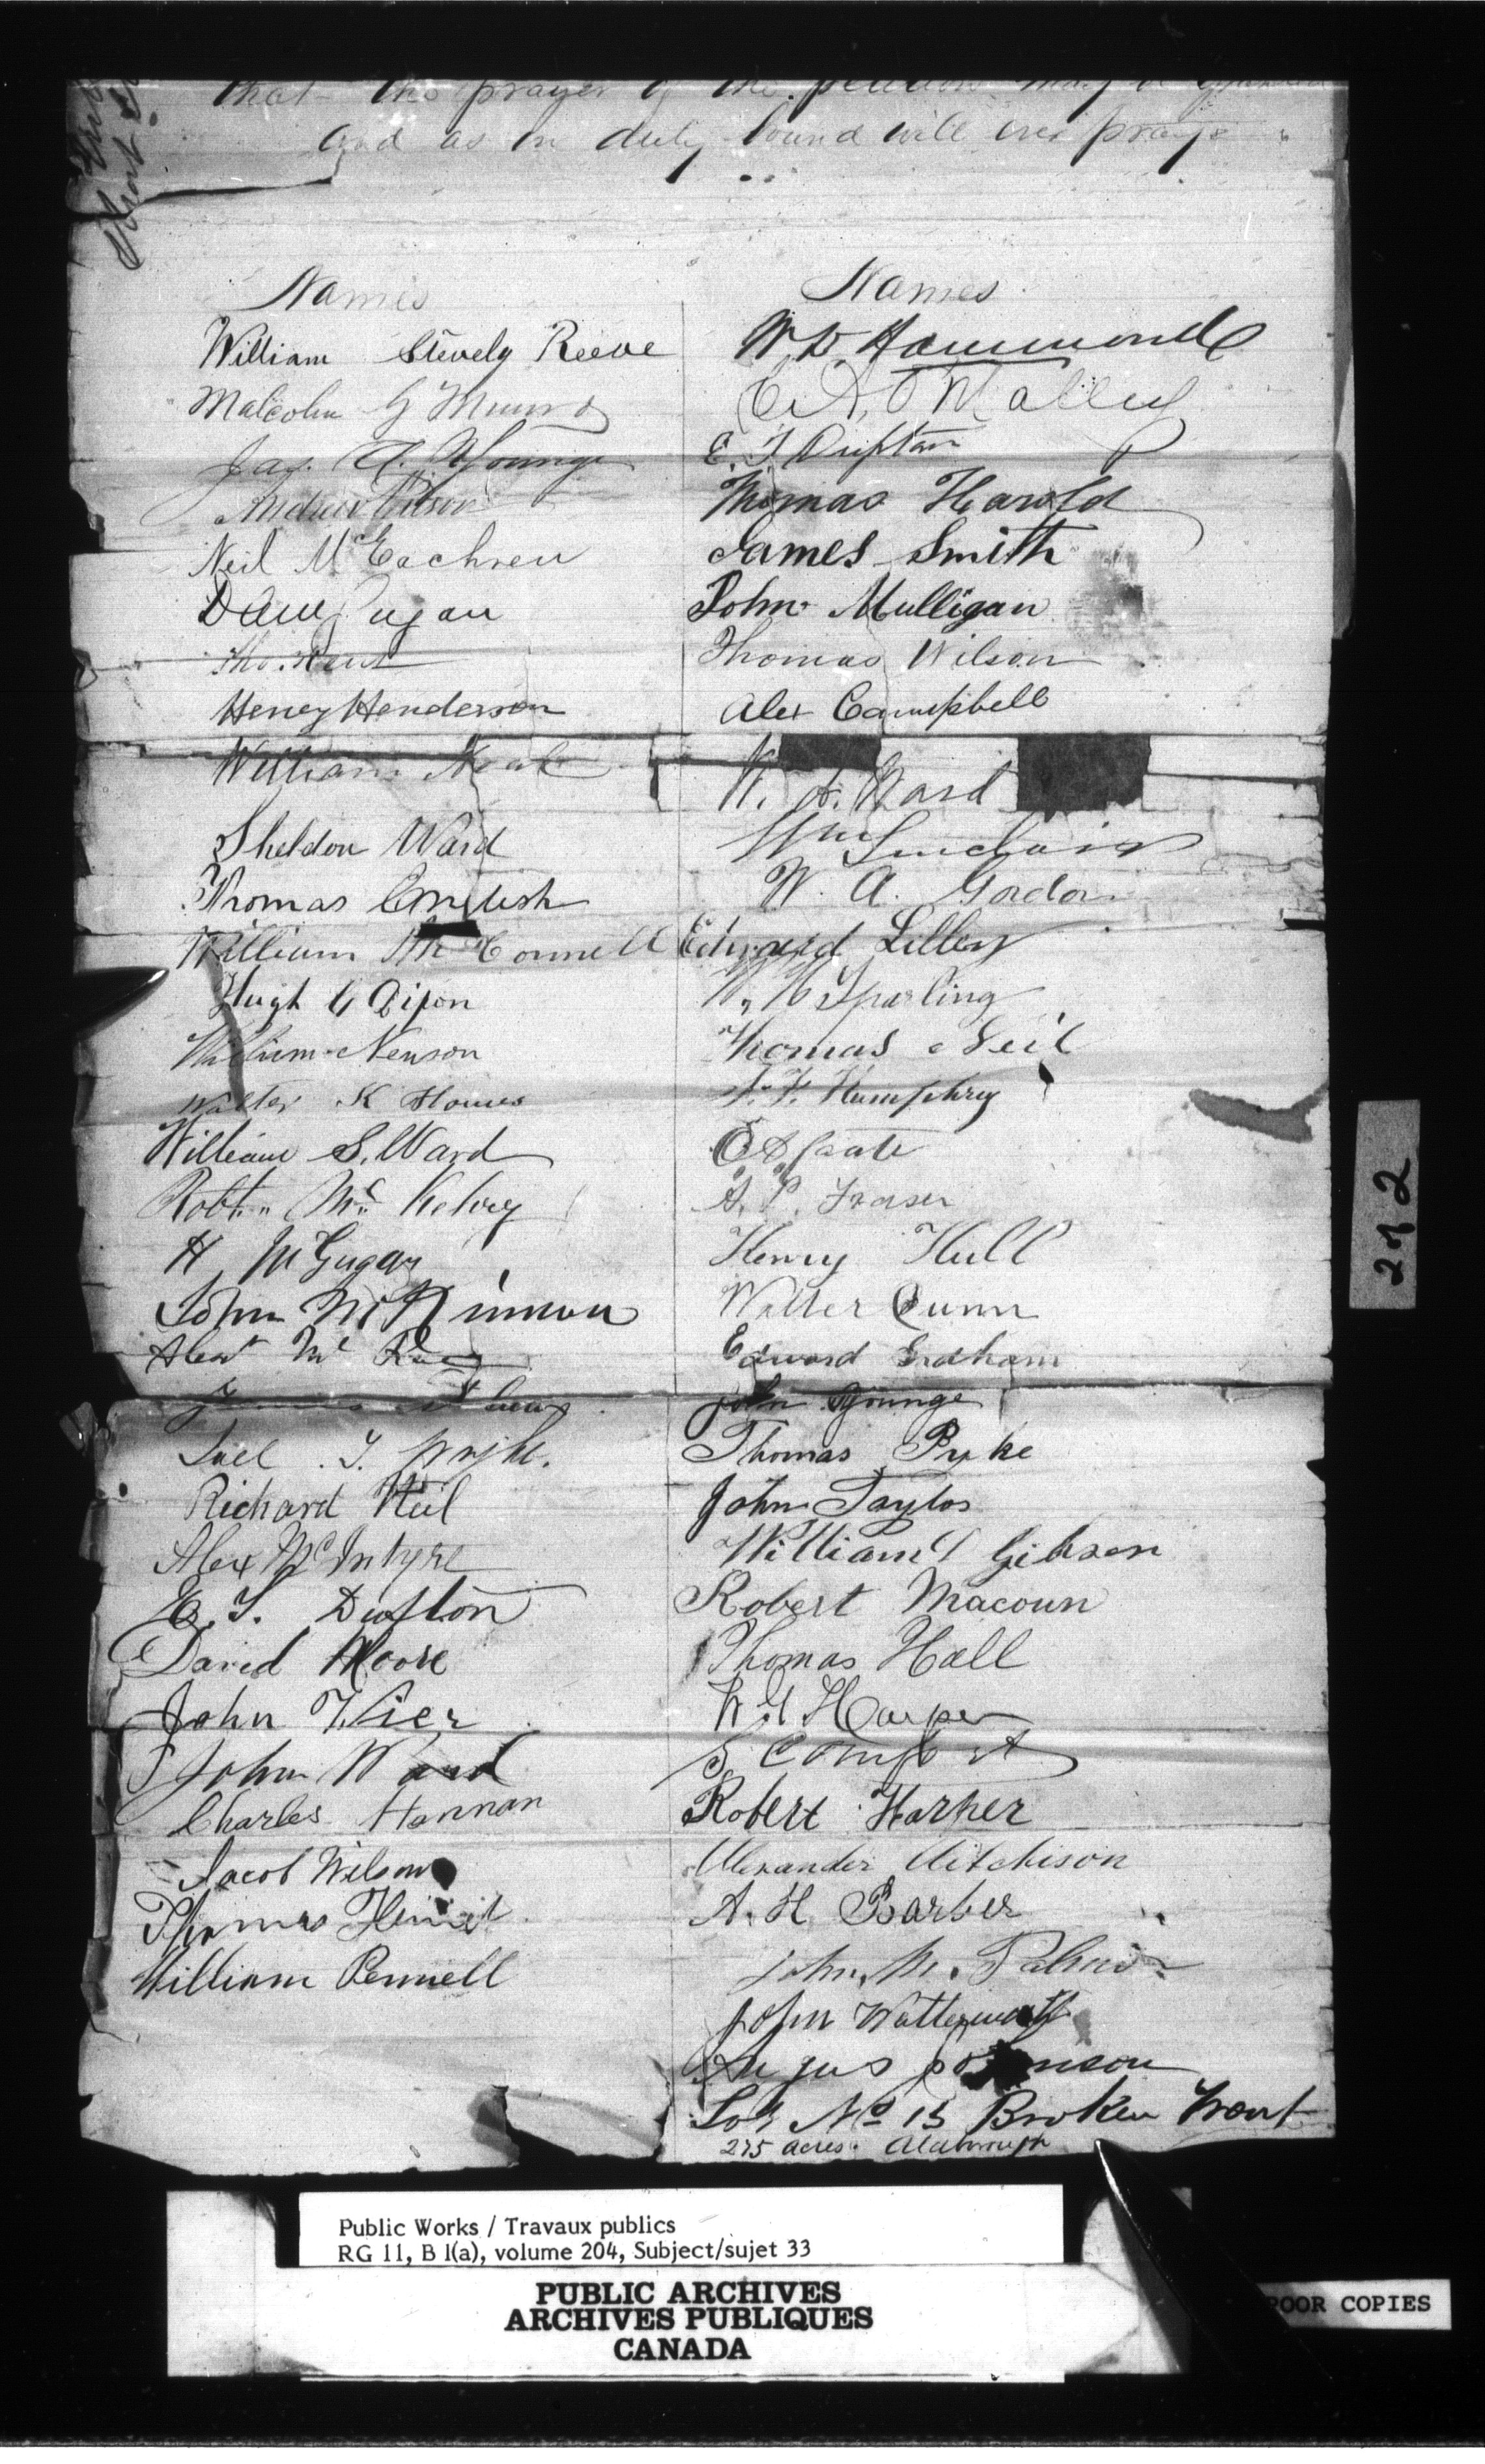 that the prayer of the petition may be granted
and as in duty bound will ever pray
Names
William Stevely Reeve
Malcolm G Munro
Jas. A. Younge
Andrew Wilson
Neil McEachren
Dan Dugan
Tho. Kent
Heney Henderson
William Neal
Sheldon Ward
Thomas English
William McConnell
Hugh G Dixon
William Newson
Walter K Homes
William S. Ward
Robt. Mc Kelvey
H McGugan
John McKinnon
Alexr Mc Rae
Richard Neil
Alex McIntyre
E. T. Dufton
David Moore
John Wier
John Ward
Charles Hannan
Jacob Wilson
Thomas
William Pennell
Names
W D Hammond
C A O'Malley
E. T Dufton
Thomas Harold
James Smith
John Mulligan
Thomas Wilson
Alex Campbell
W. A. Ward
Wm Sinclair
W. A. Gordon
Edward Lilley
W. H Sparling
Thomas Neil
T. F. Humphry
A. P. Fraser
Henry Hull
Walter Cunn
Edward
John Younge
Thomas Pyke
John Taylor
William Gibson
Robert Macoun
Thomas Hall
W G Harper
S Comfort
Robert Harper
Alexander Aitchison
A. H Barber
John M. Palmer
John Watterworth
Angus
Lot No 15 Broken Front
275 acres Aldborough
272
Public Works / Travaux publics
RG 11, B 1(a), volume 204, Subject/sujet 33
PUBLIC ARCHIVES
ARCHIVES PUBLIQUES
CANADA
POOR COPIES